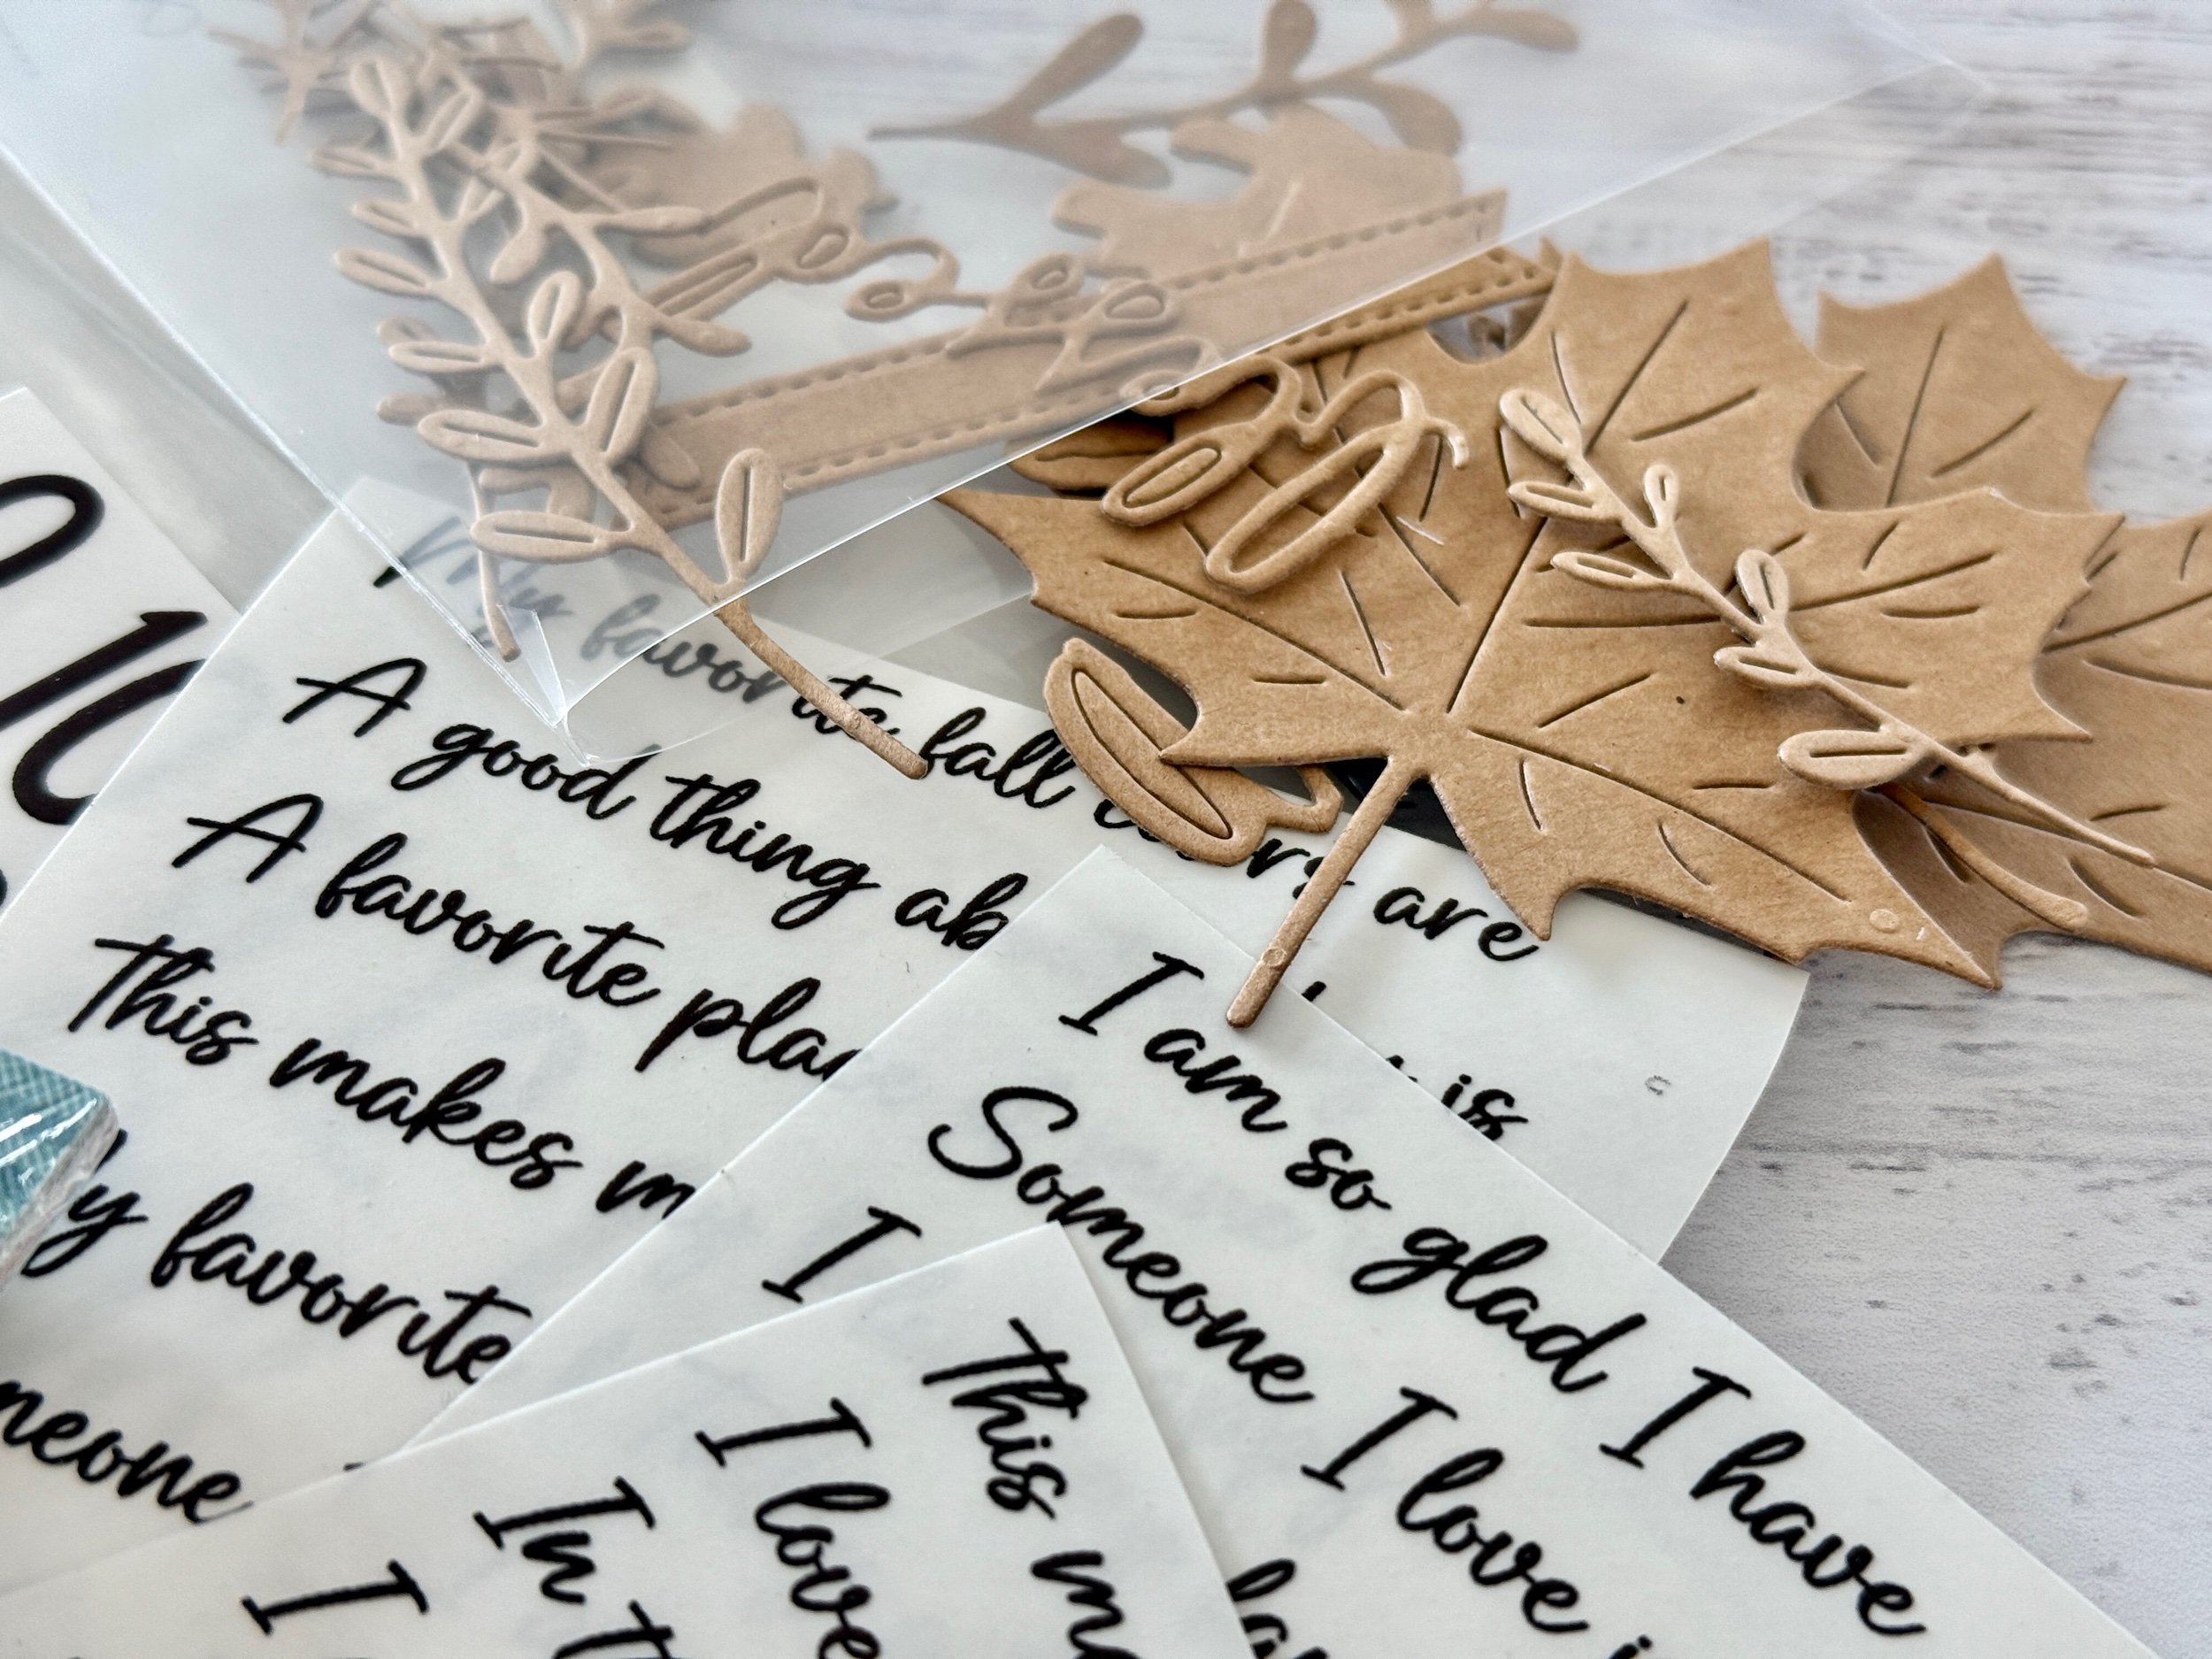 My favorite fall colors are
A good thing ab
A favorite plac
This makes m
is
y favorite
meone
I am so glad I have
Someone I love i
I
This m
I love
In t
I